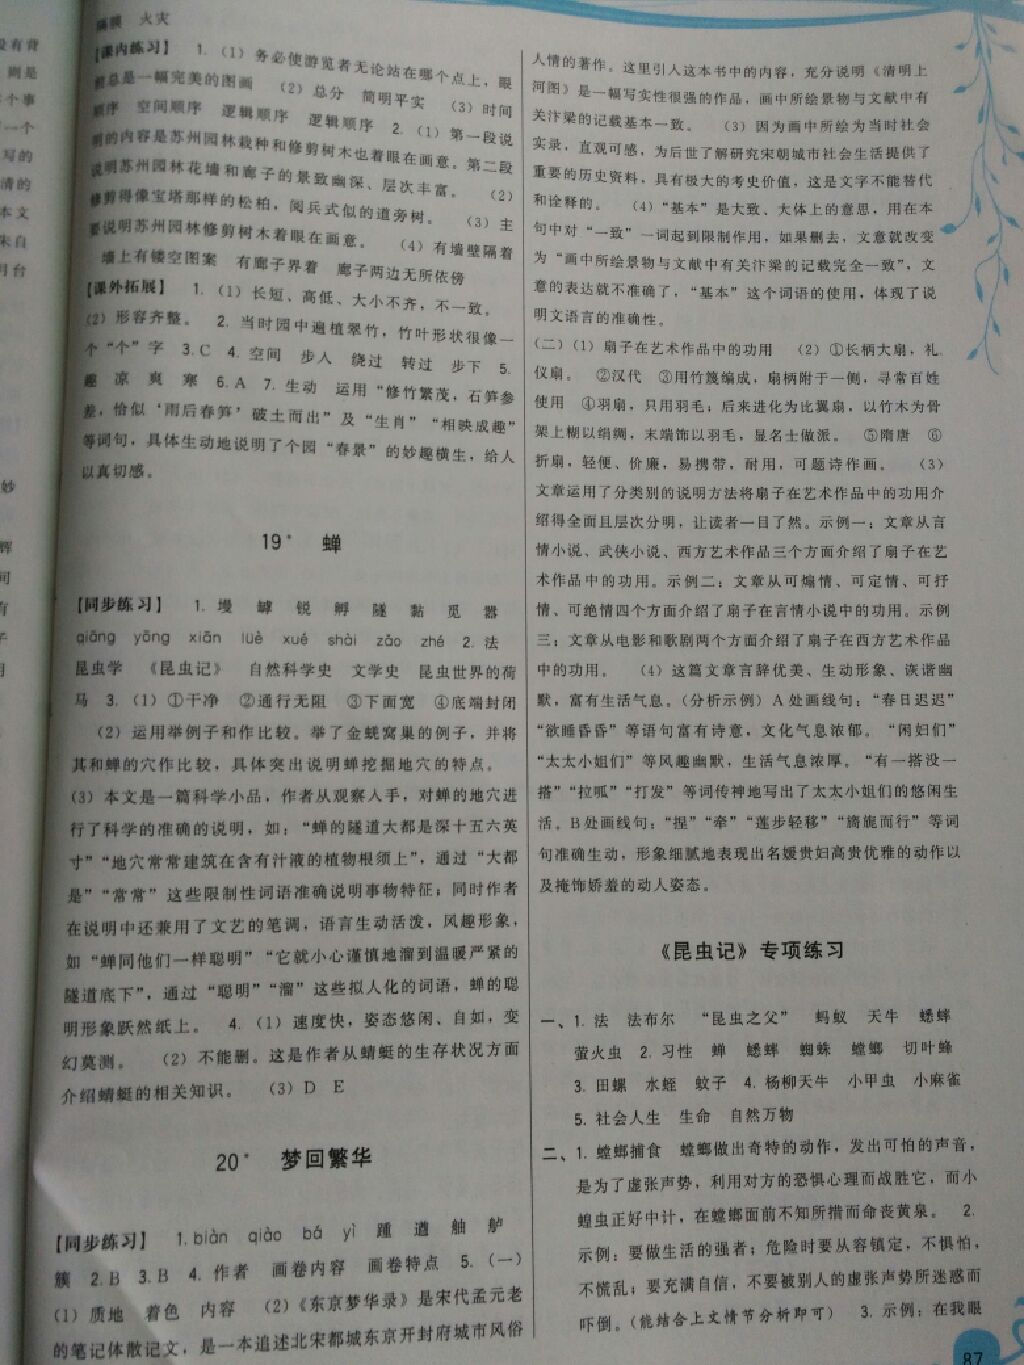 隔膜 火灾
【课内练习】 1.（1）务必使游览者无论站在哪个点上，眼
前总是一幅完美的图画 （2）总分 简明平实 （3）时间
顺序 空间顺序 逻辑顺序 逻辑顺序 2.（1）第一段说
明的内容是苏州园林栽种和修剪树木也着眼在画意。第二段
说明苏州园林花墙和廊子的景致幽深、层次丰富。 （2）
修剪得像宝塔那样的松柏，阅兵式似的道旁树。 （3）主
要说明苏州园林修剪树木着眼在画意。 （4）有墙壁隔着
墙上有镂空图案 有廊子界着 廊子两边无所依傍
【课外拓展】 1.（1）长短、高低、大小不齐，不一致。
（2）形容齐整。 2. 当时园中遍植翠竹，竹叶形状很像一
个“个”字 3.C 4. 空间 步入 绕过 转过 步下 5.
趣 凉 爽 寒 6.A 7. 生动 运用“修竹繁茂，石笋参
差，恰似‘雨后春笋’破土而出”及“生肖”“相映成趣”
等词句，具体生动地说明了个园“春景”的妙趣横生，给人
以真切感。
19* 蝉
【同步练习】 1. 墁 罅 锐 孵 隧 黏 觅 嚣
qiāng yōng xiān lüè xué shài zǎo zhé 2. 法
昆虫学 《昆虫记》 自然科学史 文学史 昆虫世界的荷
马 3.（1）①干净 ②通行无阻 ③下面宽 ④底端封闭
（2）运用举例子和作比较。举了金蜣窝巢的例子，并将
其和蝉的穴作比较，具体突出说明蝉挖掘地穴的特点。
（3）本文是一篇科学小品，作者从观察人手，对蝉的地穴进
行了科学的准确的说明，如：“蝉的隧道大都是深十五六英
寸”“地穴常常建筑在含有汁液的植物根须上”，通过“大都
是”“常常”这些限制性词语准确说明事物特征；同时作者
在说明中还兼用了文艺的笔调，语言生动活泼，风趣形象，
如“蝉同他们一样聪明”“它就小心谨慎地溜到温暖严紧的
隧道底下”，通过“聪明”“溜”这些拟人化的词语，蝉的聪
明形象跃然纸上。 4.（1）速度快，姿态悠闲、自如，变
幻莫测。 （2）不能删。这是作者从蜻蜓的生存状况方面
介绍蜻蜓的相关知识。 （3）D E
20* 梦回繁华
【同步练习】 1.biàn qiào bá yì 踵 遒 舳 舻
簇 2.B 3.B 4. 作者 画卷内容 画卷特点 5.（一）
（1）质地 着色 内容 （2）《东京梦华录》是宋代孟元老
的笔记体散记文，是一本追述北宋都城东京开封府城市风俗
人情的著作。这里引人这本书中的内容，充分说明《清明上
河图》是一幅写实性很强的作品，画中所绘景物与文献中有
关汴梁的记载基本一致。 （3）因为画中所绘为当时社会
实录，直观可感，为后世了解研究宋朝城市社会生活提供了
重要的历史资料，具有极大的考史价值，这是文字不能替代
和诠释的。 （4）“基本”是大致、大体上的意思，用在本
句中对“一致”一词起到限制作用，如果删去，文意就改变
为“画中所绘景物与文献中有关汴梁的记载完全一致”，文
意的表达就不准确了，“基本”这个词语的使用，体现了说
明文语言的准确性。
（二）（1）扇子在艺术作品中的功用 （2）①长柄大扇，礼
仪扇。 ②汉代 ③用竹篾编成，扇柄附于一侧，寻常百姓
使用 ④羽扇，只用羽毛；后来进化为比翼扇，以竹木为骨
架上糊以绢绸，末端饰以羽毛，显名士做派。 ⑤隋唐 ⑥
折扇，轻便、价廉，易携带，耐用，可题诗作画。 （3）
文章运用了分类别的说明方法将扇子在艺术作品中的功用介
绍得全面且层次分明，让读者一目了然。示例一：文章从言
情小说、武侠小说、西方艺术作品三个方面介绍了扇子在艺
术作品中的功用。示例二：文章从可煽情、可定情、可抒
情、可绝情四个方面介绍了扇子在言情小说中的功用。示例
三：文章从电影和歌剧两个方面介绍了扇子在西方艺术作品
中的功用。 （4）这篇文章言辞优美、生动形象、诙谐幽
默，富有生活气息。（分析示例）A处画线句：“春日迟迟”
“欲睡昏昏”等语句富有诗意，文化气息浓郁。“闲妇们”
“太太小姐们”等风趣幽默，生活气息浓厚。“有一搭没一
搭”“拉呱”“打发”等词传神地写出了太太小姐们的悠闲生
活。B处画线句：“捏”“牵”“莲步轻移”“旖旎而行”等词
句准确生动，形象细腻地表现出名媛贵妇高贵优雅的动作以
及掩饰娇羞的动人姿态。
《昆虫记》专项练习
一、1. 法 法布尔 “昆虫之父” 蚂蚁 天牛 蟋蟀
萤火虫 2. 习性 蝉 蟋蟀 蜘蛛 螳螂 切叶蜂
3. 田螺 水蛭 蚊子 4. 杨柳天牛 小甲虫 小麻雀
5. 社会人生 生命 自然万物
二、1. 螳螂捕食 螳螂做出奇特的动作，发出可怕的声音，
是为了虚张声势，利用对方的恐惧心理而战胜它，而小
蝗虫正好中计，在螳螂面前不知所措而命丧黄泉。 2.
示例：要做生活的强者；危险时要从容镇定，不惧怕，
不慌乱；要充满自信，不要被别人的虚张声势所迷惑而
吓倒。（能结合上文情节分析即可） 3. 示例：在我眼
87